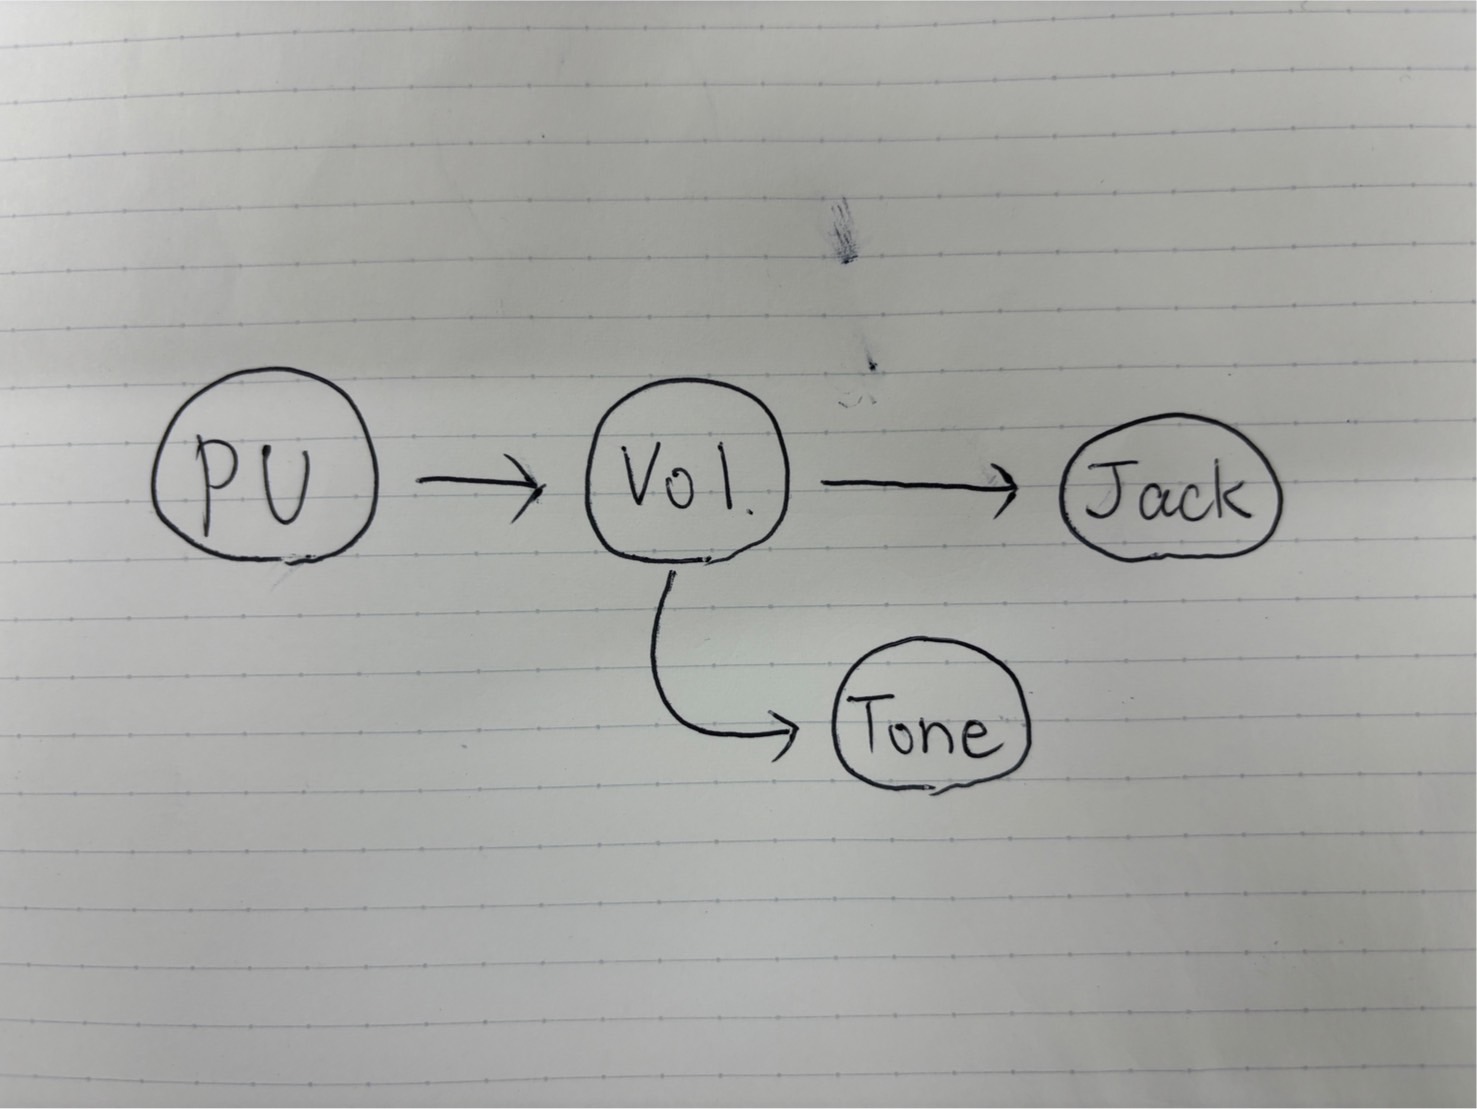 PU
Vol.
Jack
Tone